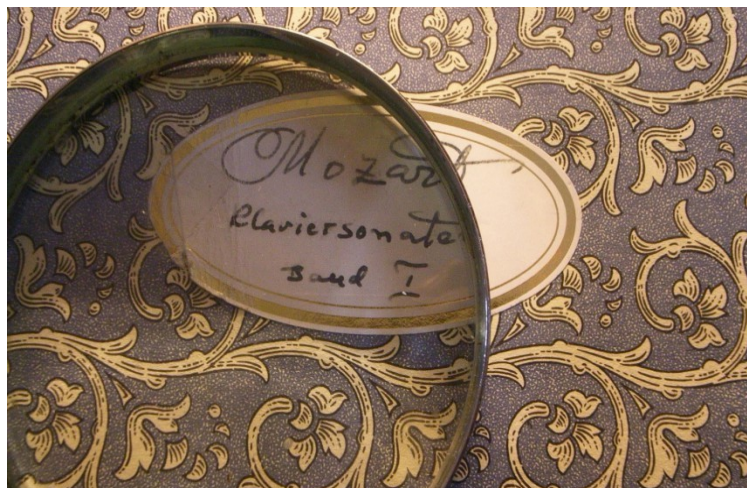 Mozart
Klaviersonate
Band I